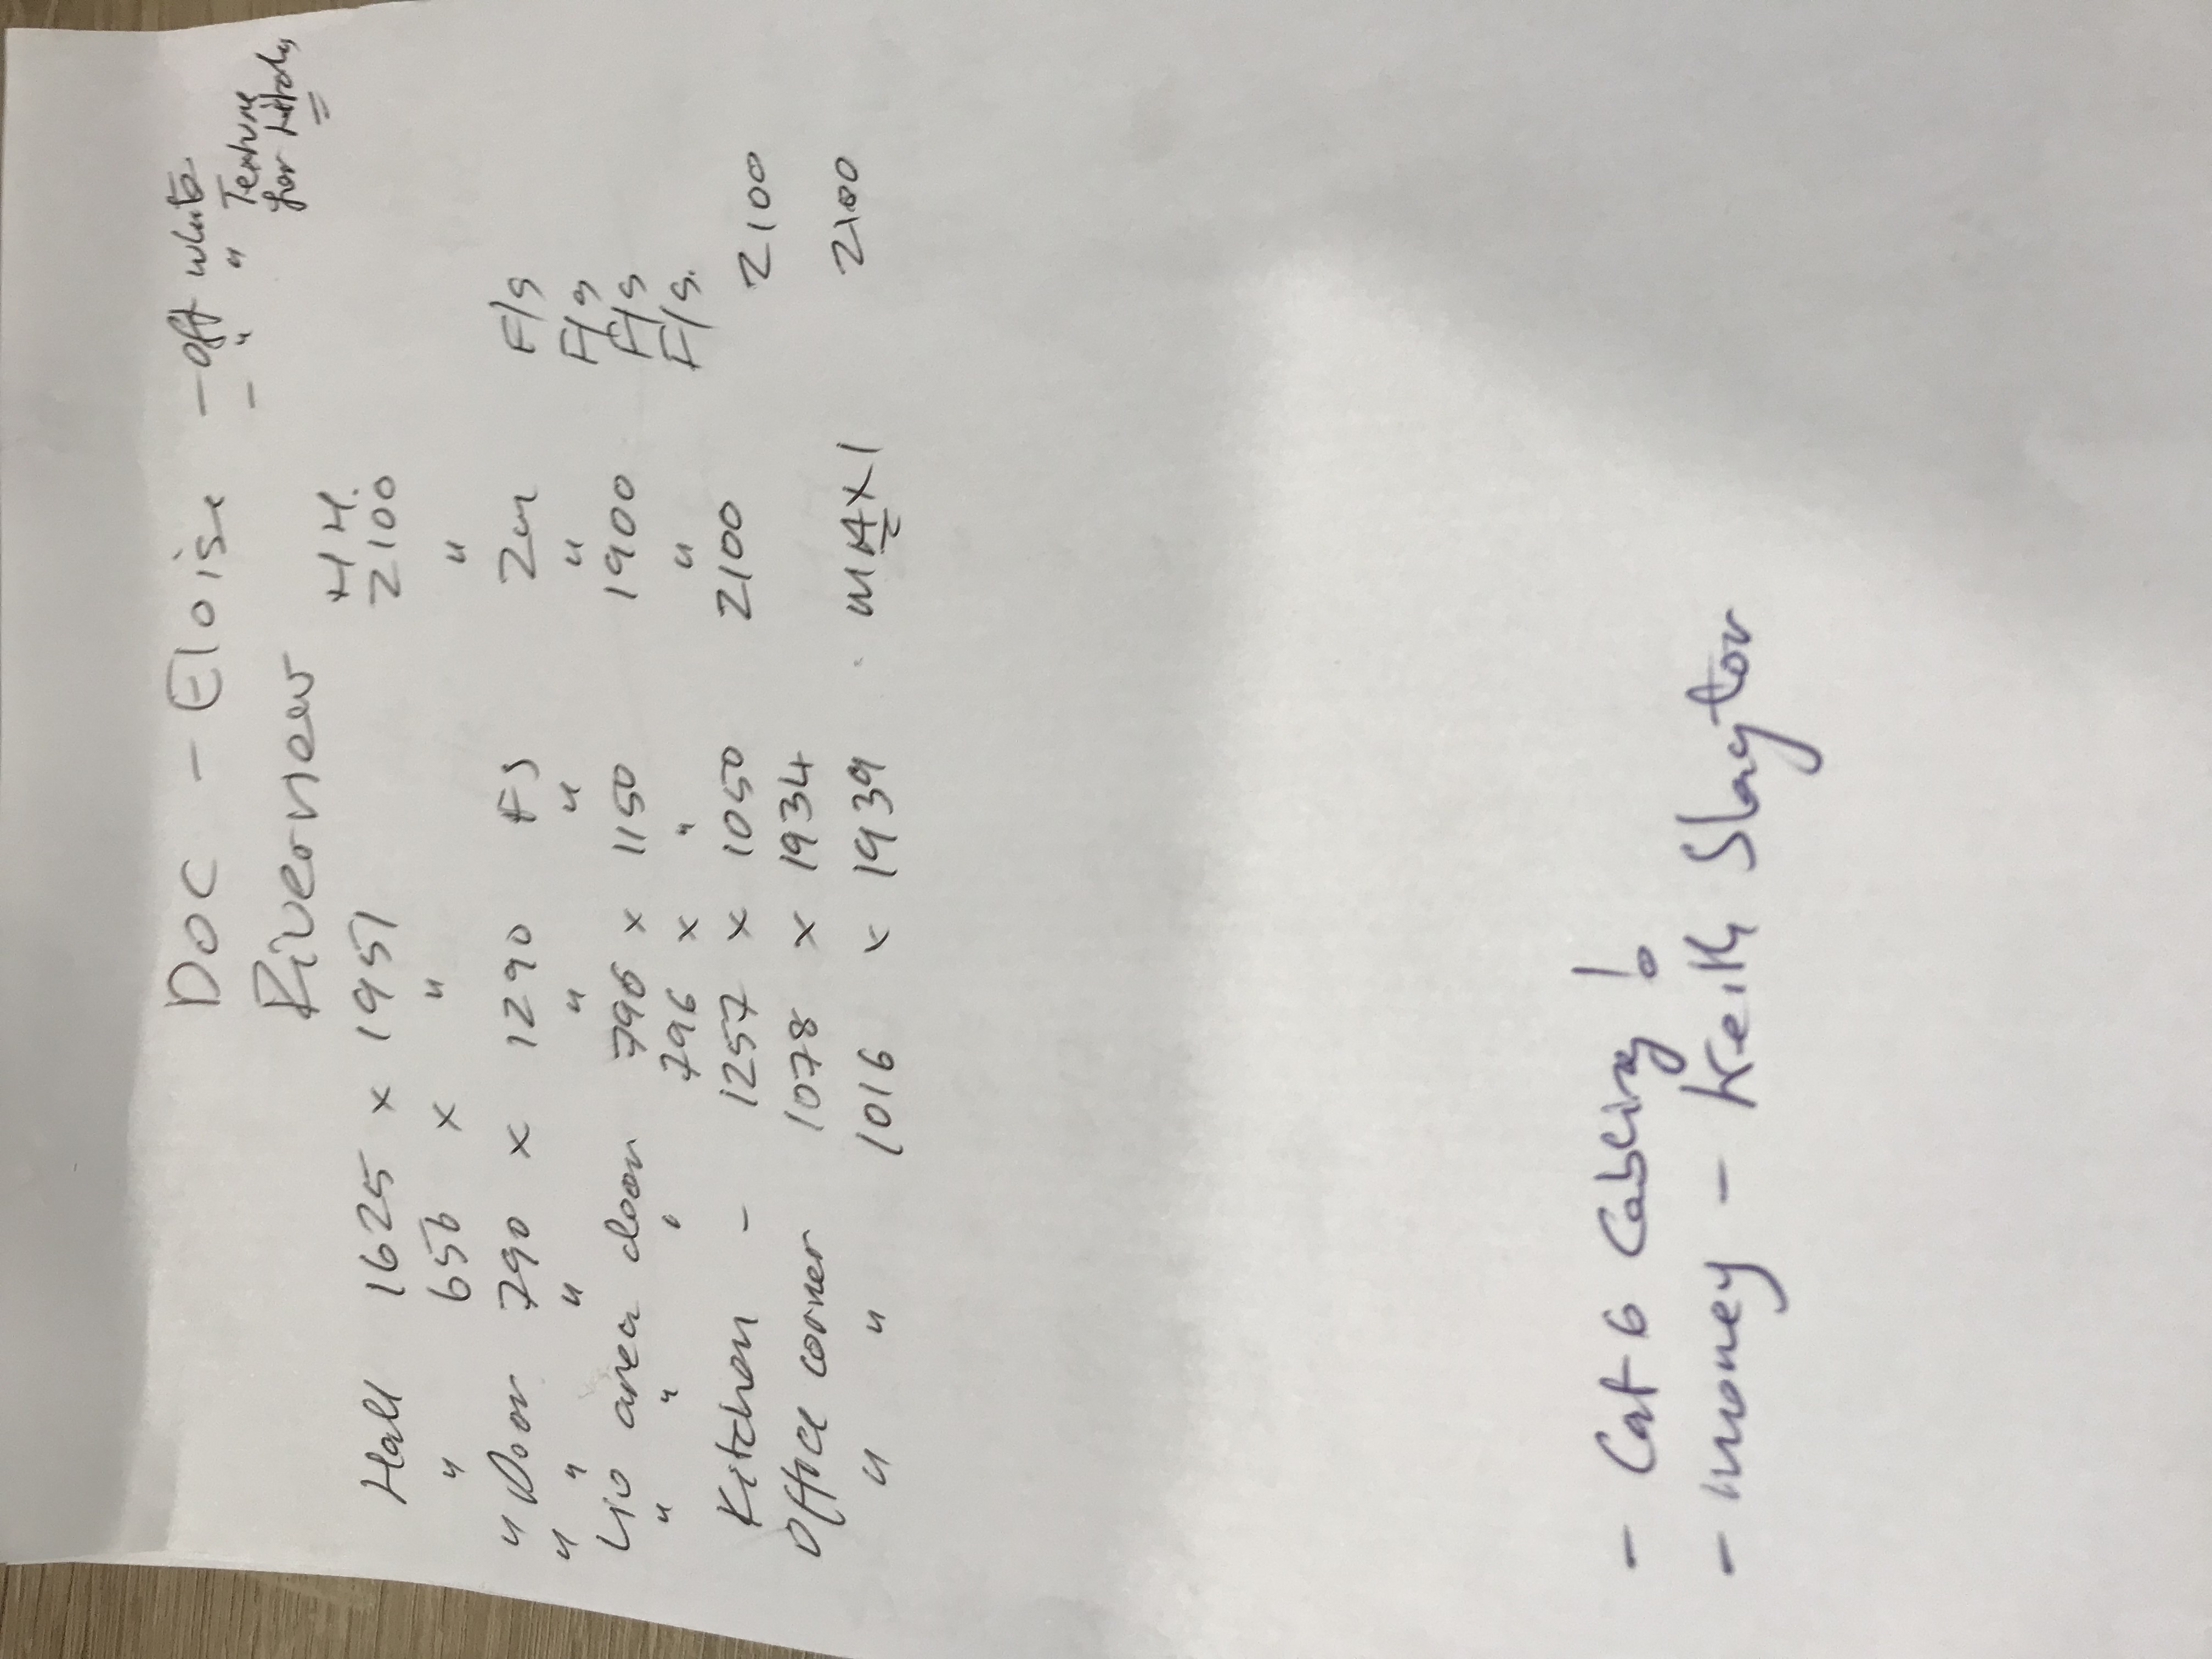 DOC - Eloise - off white
- " " Texture for kitch
Riverview
H H.
Hall 1625 x 1951 2100
" 656 x " "
" Door 790 x 1290 FS 2m F/S
" " " " " " F/S
Lio area door 796 x 1150 1900 F/S
" " " 796 x " " F/S.
Kitchen - 1257 x 1050 2100 2100
Office corner 1078 x 1934
" " 1016 x 1939 MAXI 2100
- Cat 6 Cabling
- money - Keith Slaytor